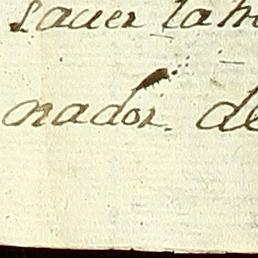 sauer la
nador. de